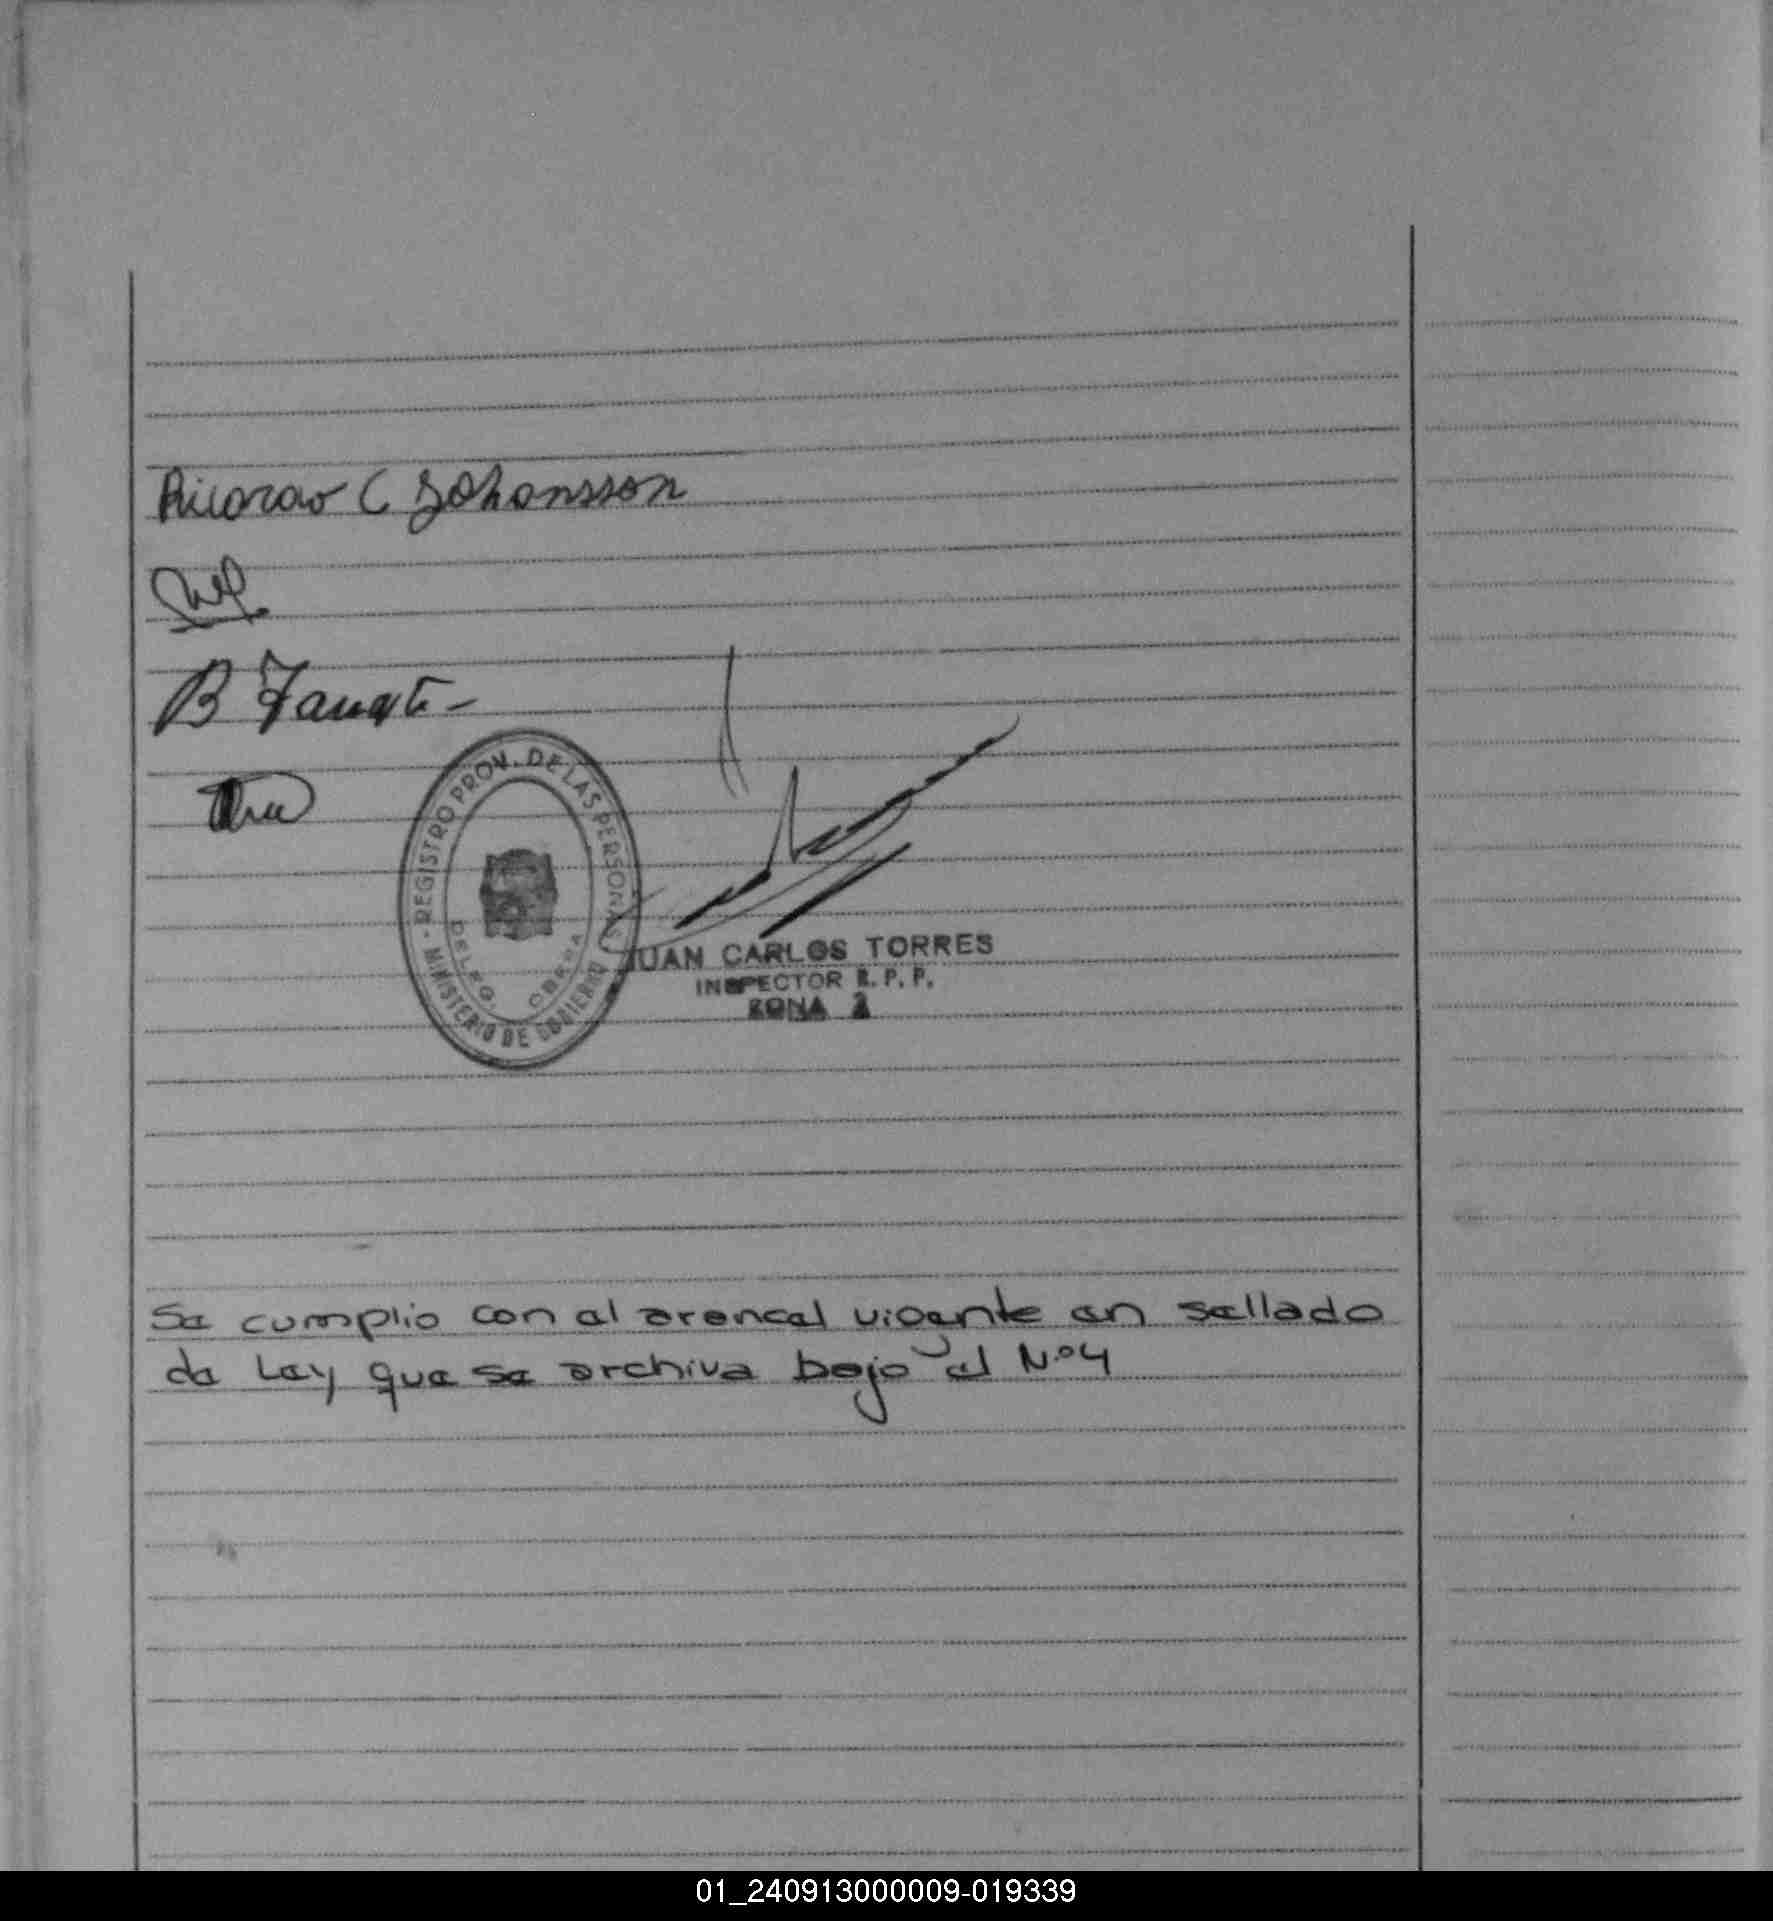 Ricardo C Johansson
B Zanat
REGISTRO PROV. DE LAS PERSONAS
MINISTERIO DE GOBIERNO
DELEG. OBERA
JUAN CARLOS TORRES
INSPECTOR R. P. P.
ZONA 2
Se cumplio con el arancel vigente en sellado
de Ley que se archiva bajo el N.º 4
01_240913000009-019339